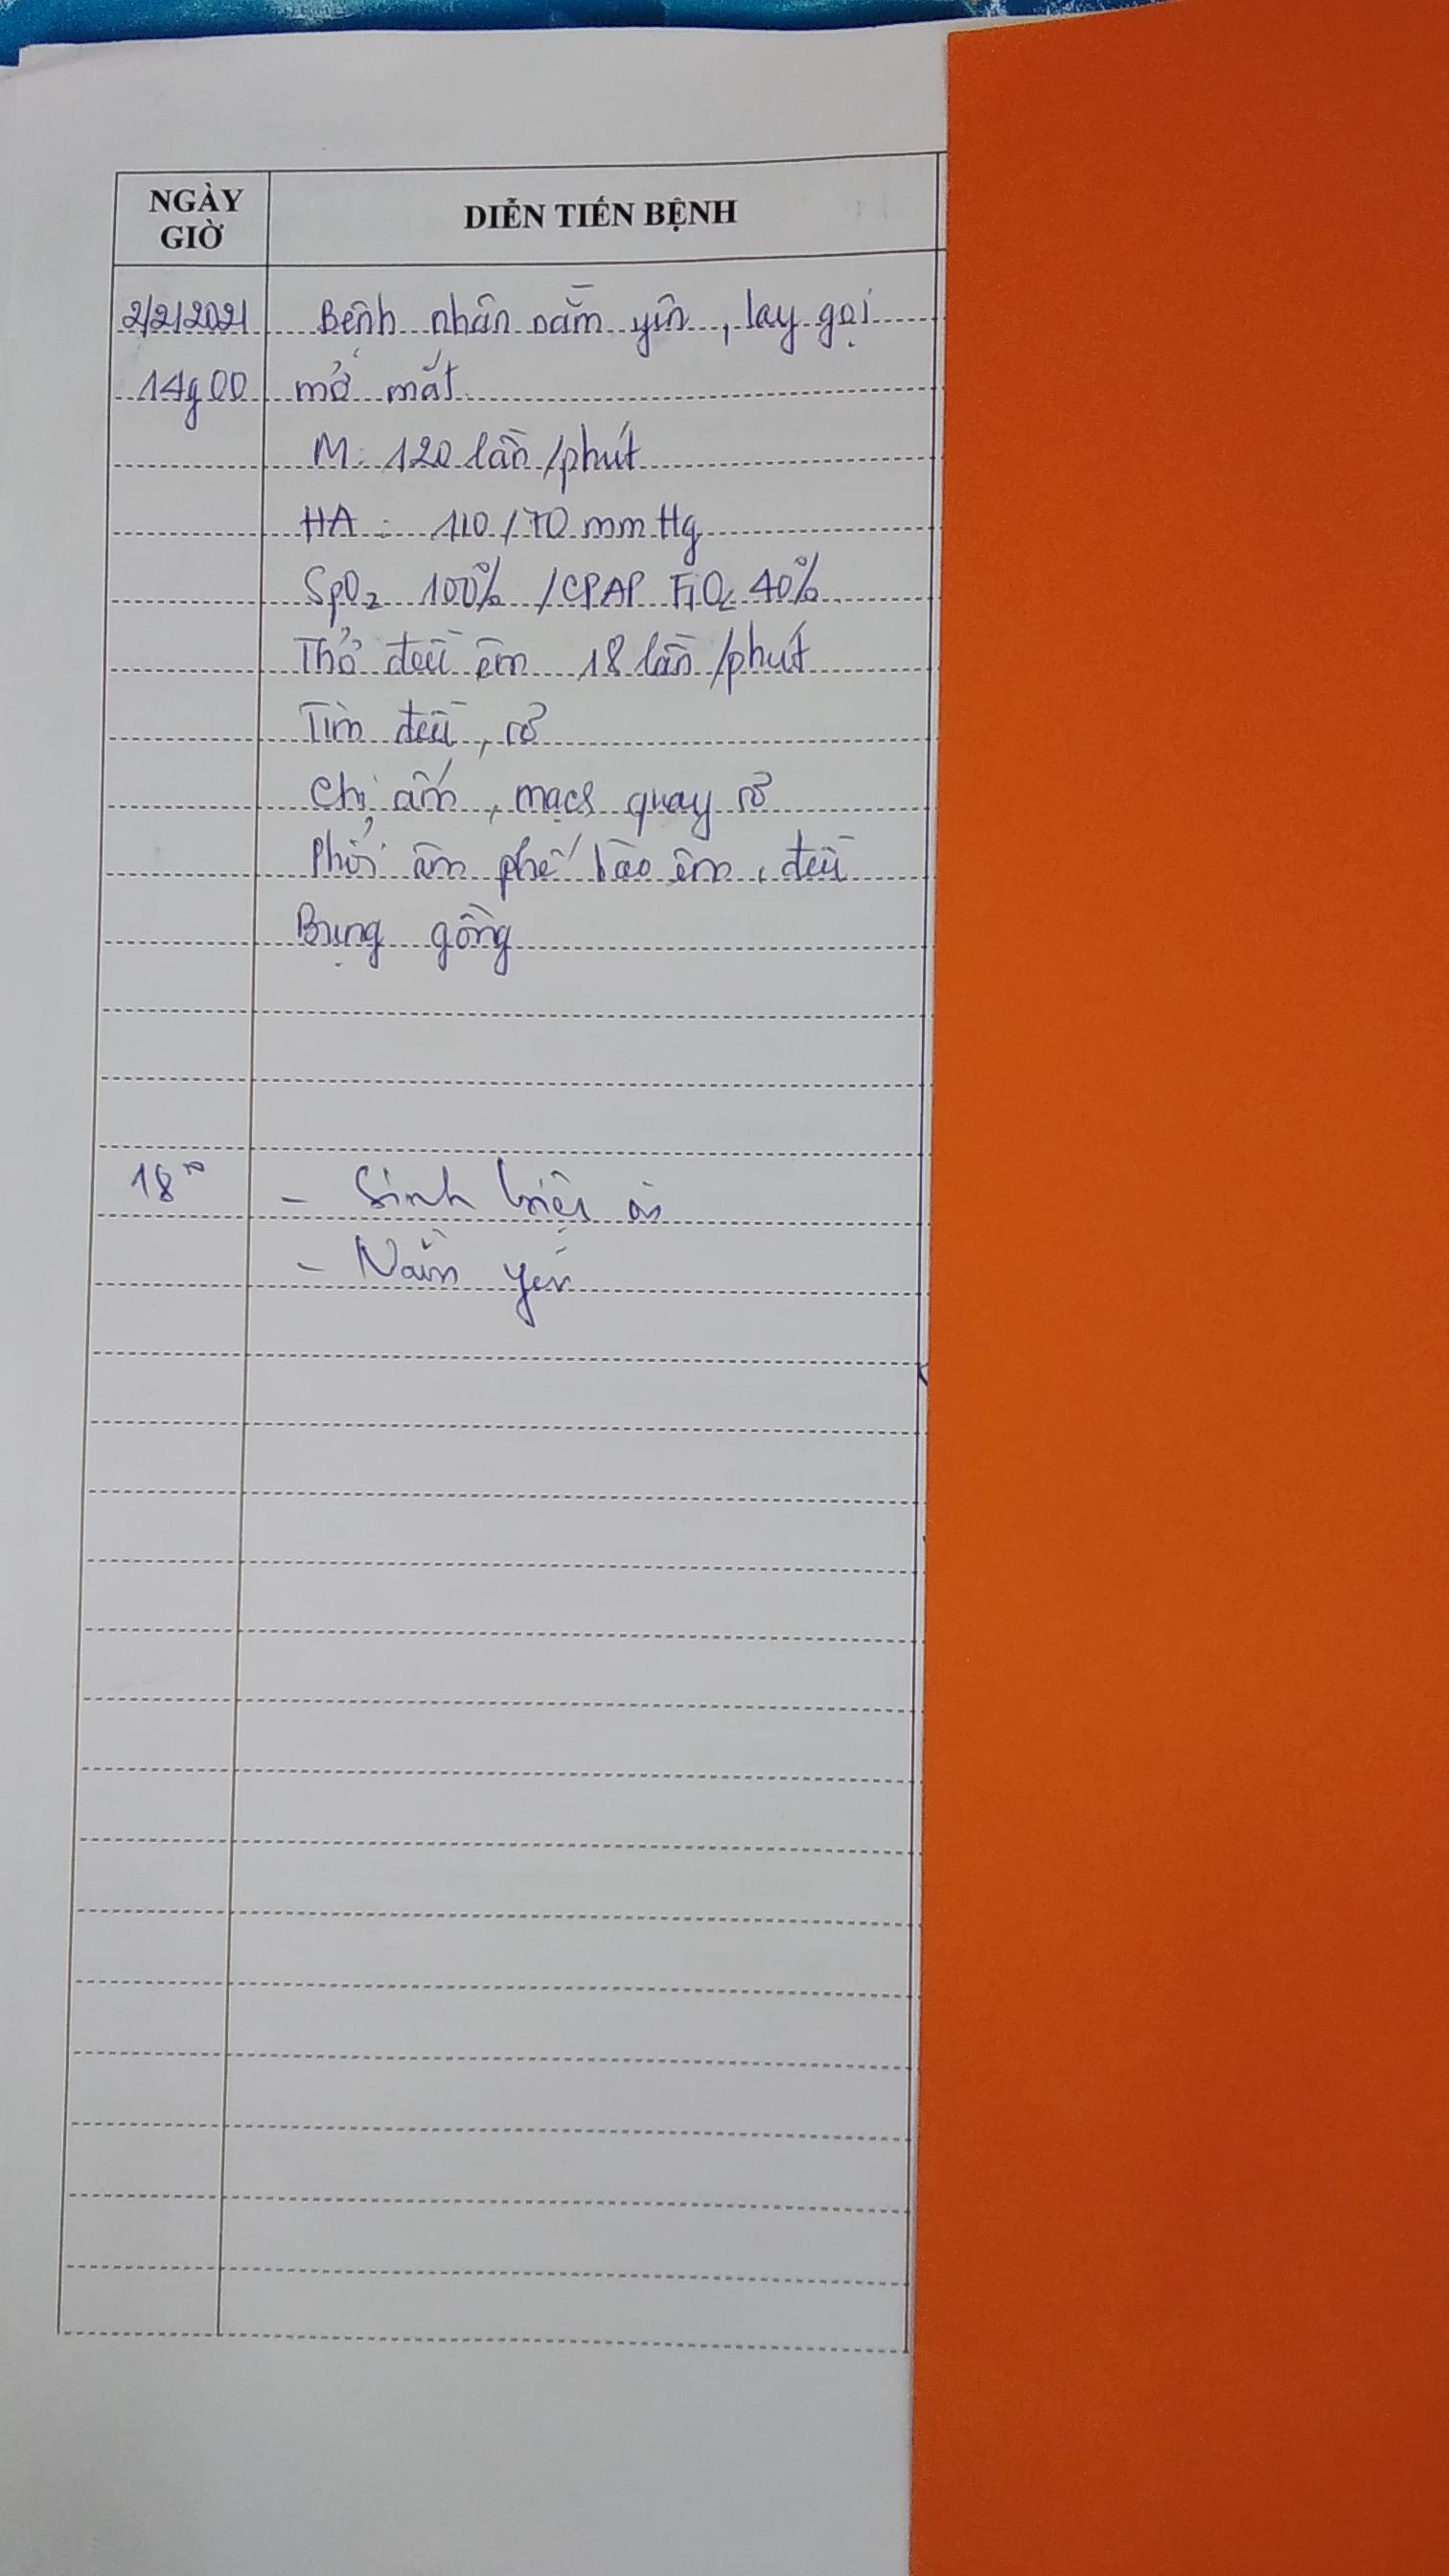 NGÀY GIỜ
DIỄN TIẾN BỆNH
2/2/2021 Bệnh nhân nằm yên, lay gọi
14g00 mở mắt
M: 120 lần/phút
HA: 110/70 mmHg
SpO2 100% /CPAP FiO2 40%
Thở đều êm 18 lần/phút
Tim đều, rõ
Chi ấm, mạch quay rõ
Phổi âm phế bào êm, đều
Bụng gồng
18h00 - Sinh hiệu ổn
- Nằm yên